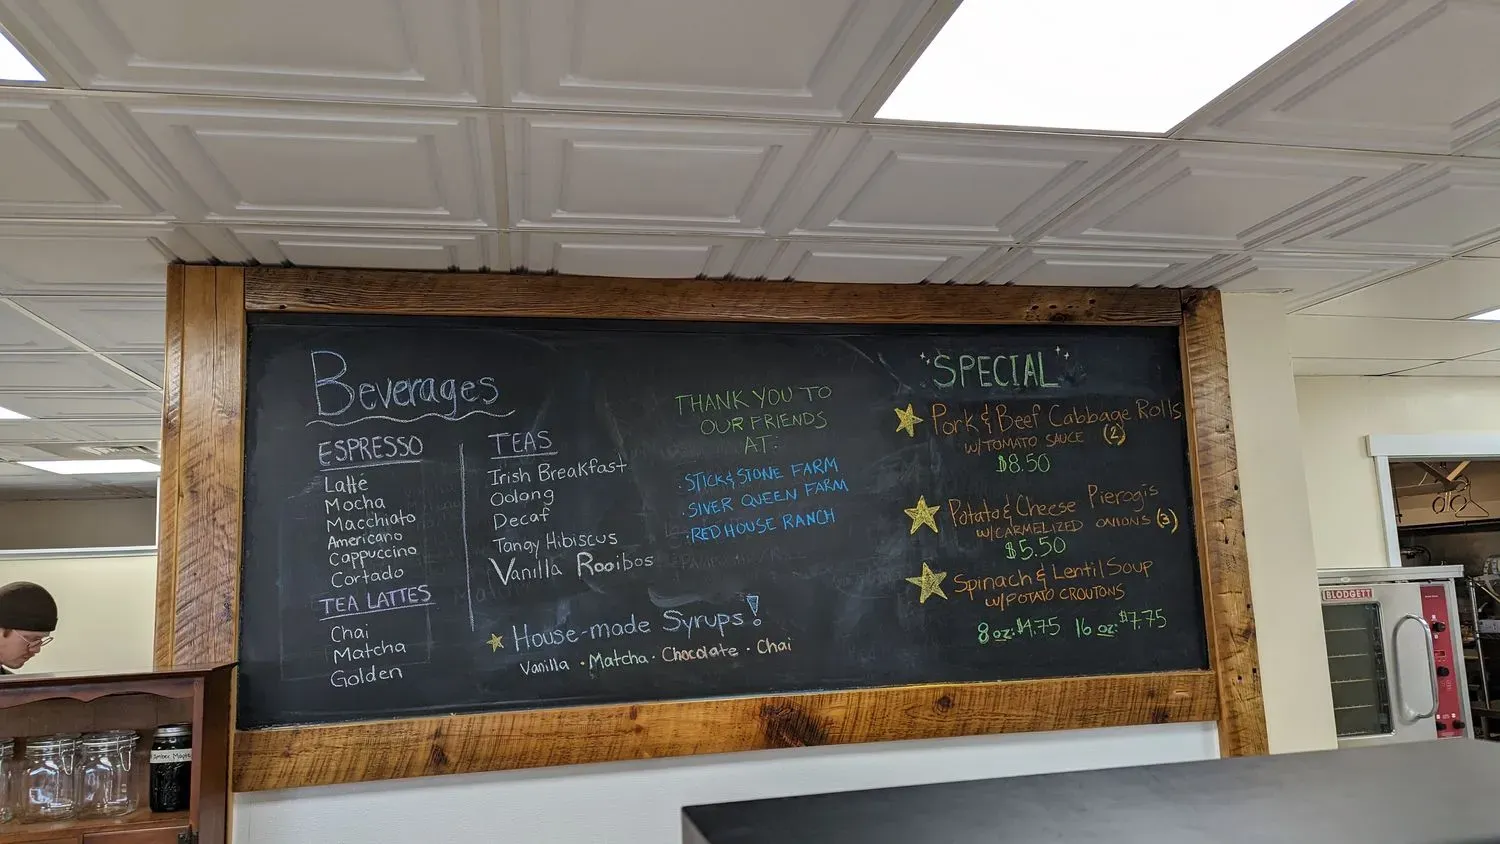 Beverages
ESPRESSO
Latté
Mocha
Macchiato
Americano
Cappuccino
Cortado
TEA LATTES
Chai
Matcha
Golden
TEAS
Irish Breakfast
Oolong
Decaf
Tangy Hibiscus
Vanilla Rooibos
House-made Syrups!
Vanilla · Matcha · Chocolate · Chai
THANK YOU TO
OUR FRIENDS
AT:
· STICK & STONE FARM
· SIVER QUEEN FARM
· RED HOUSE RANCH
SPECIAL
Pork & Beef Cabbage Rolls
W/TOMATO SAUCE (2)
$8.50
Potato & Cheese Pierogis
W/CARMELIZED ONIONS (3)
$5.50
Spinach & Lentil Soup
W/POTATO CROUTONS
8 oz: $4.75 16 oz: $7.75
BLODGETT